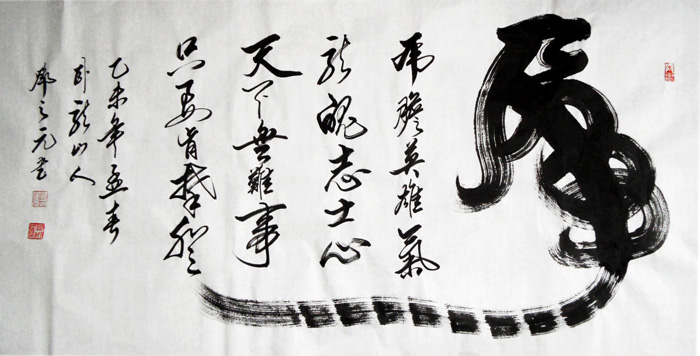 虎
虎膽英雄氣
龍魄志士心
天下無難事
只要肯攀登
乙未年孟春
卧龍山人
之元書